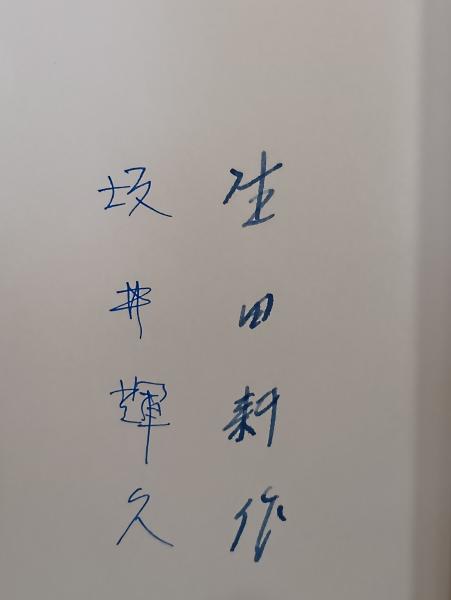 生田耕作
坂井輝久